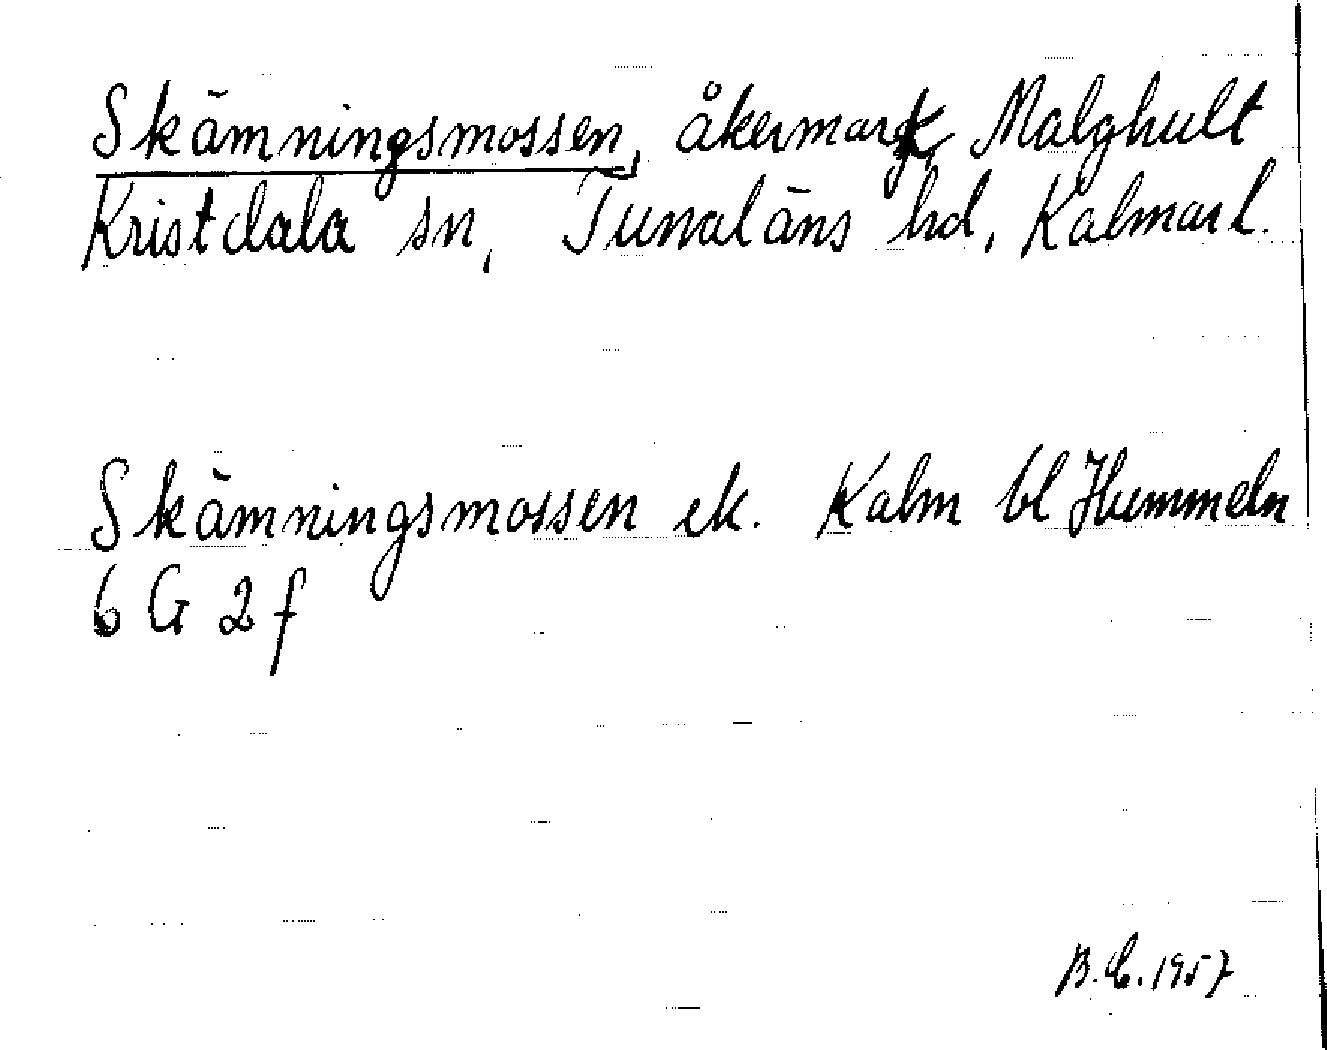 Skämningsmossen, åkermark, Malghult
Kristdala sn, Tunaläns hd, Kalmar l.
Skämningsmossen ek. Kalm bl Hummeln
6 G 2 f
B.E. 1957